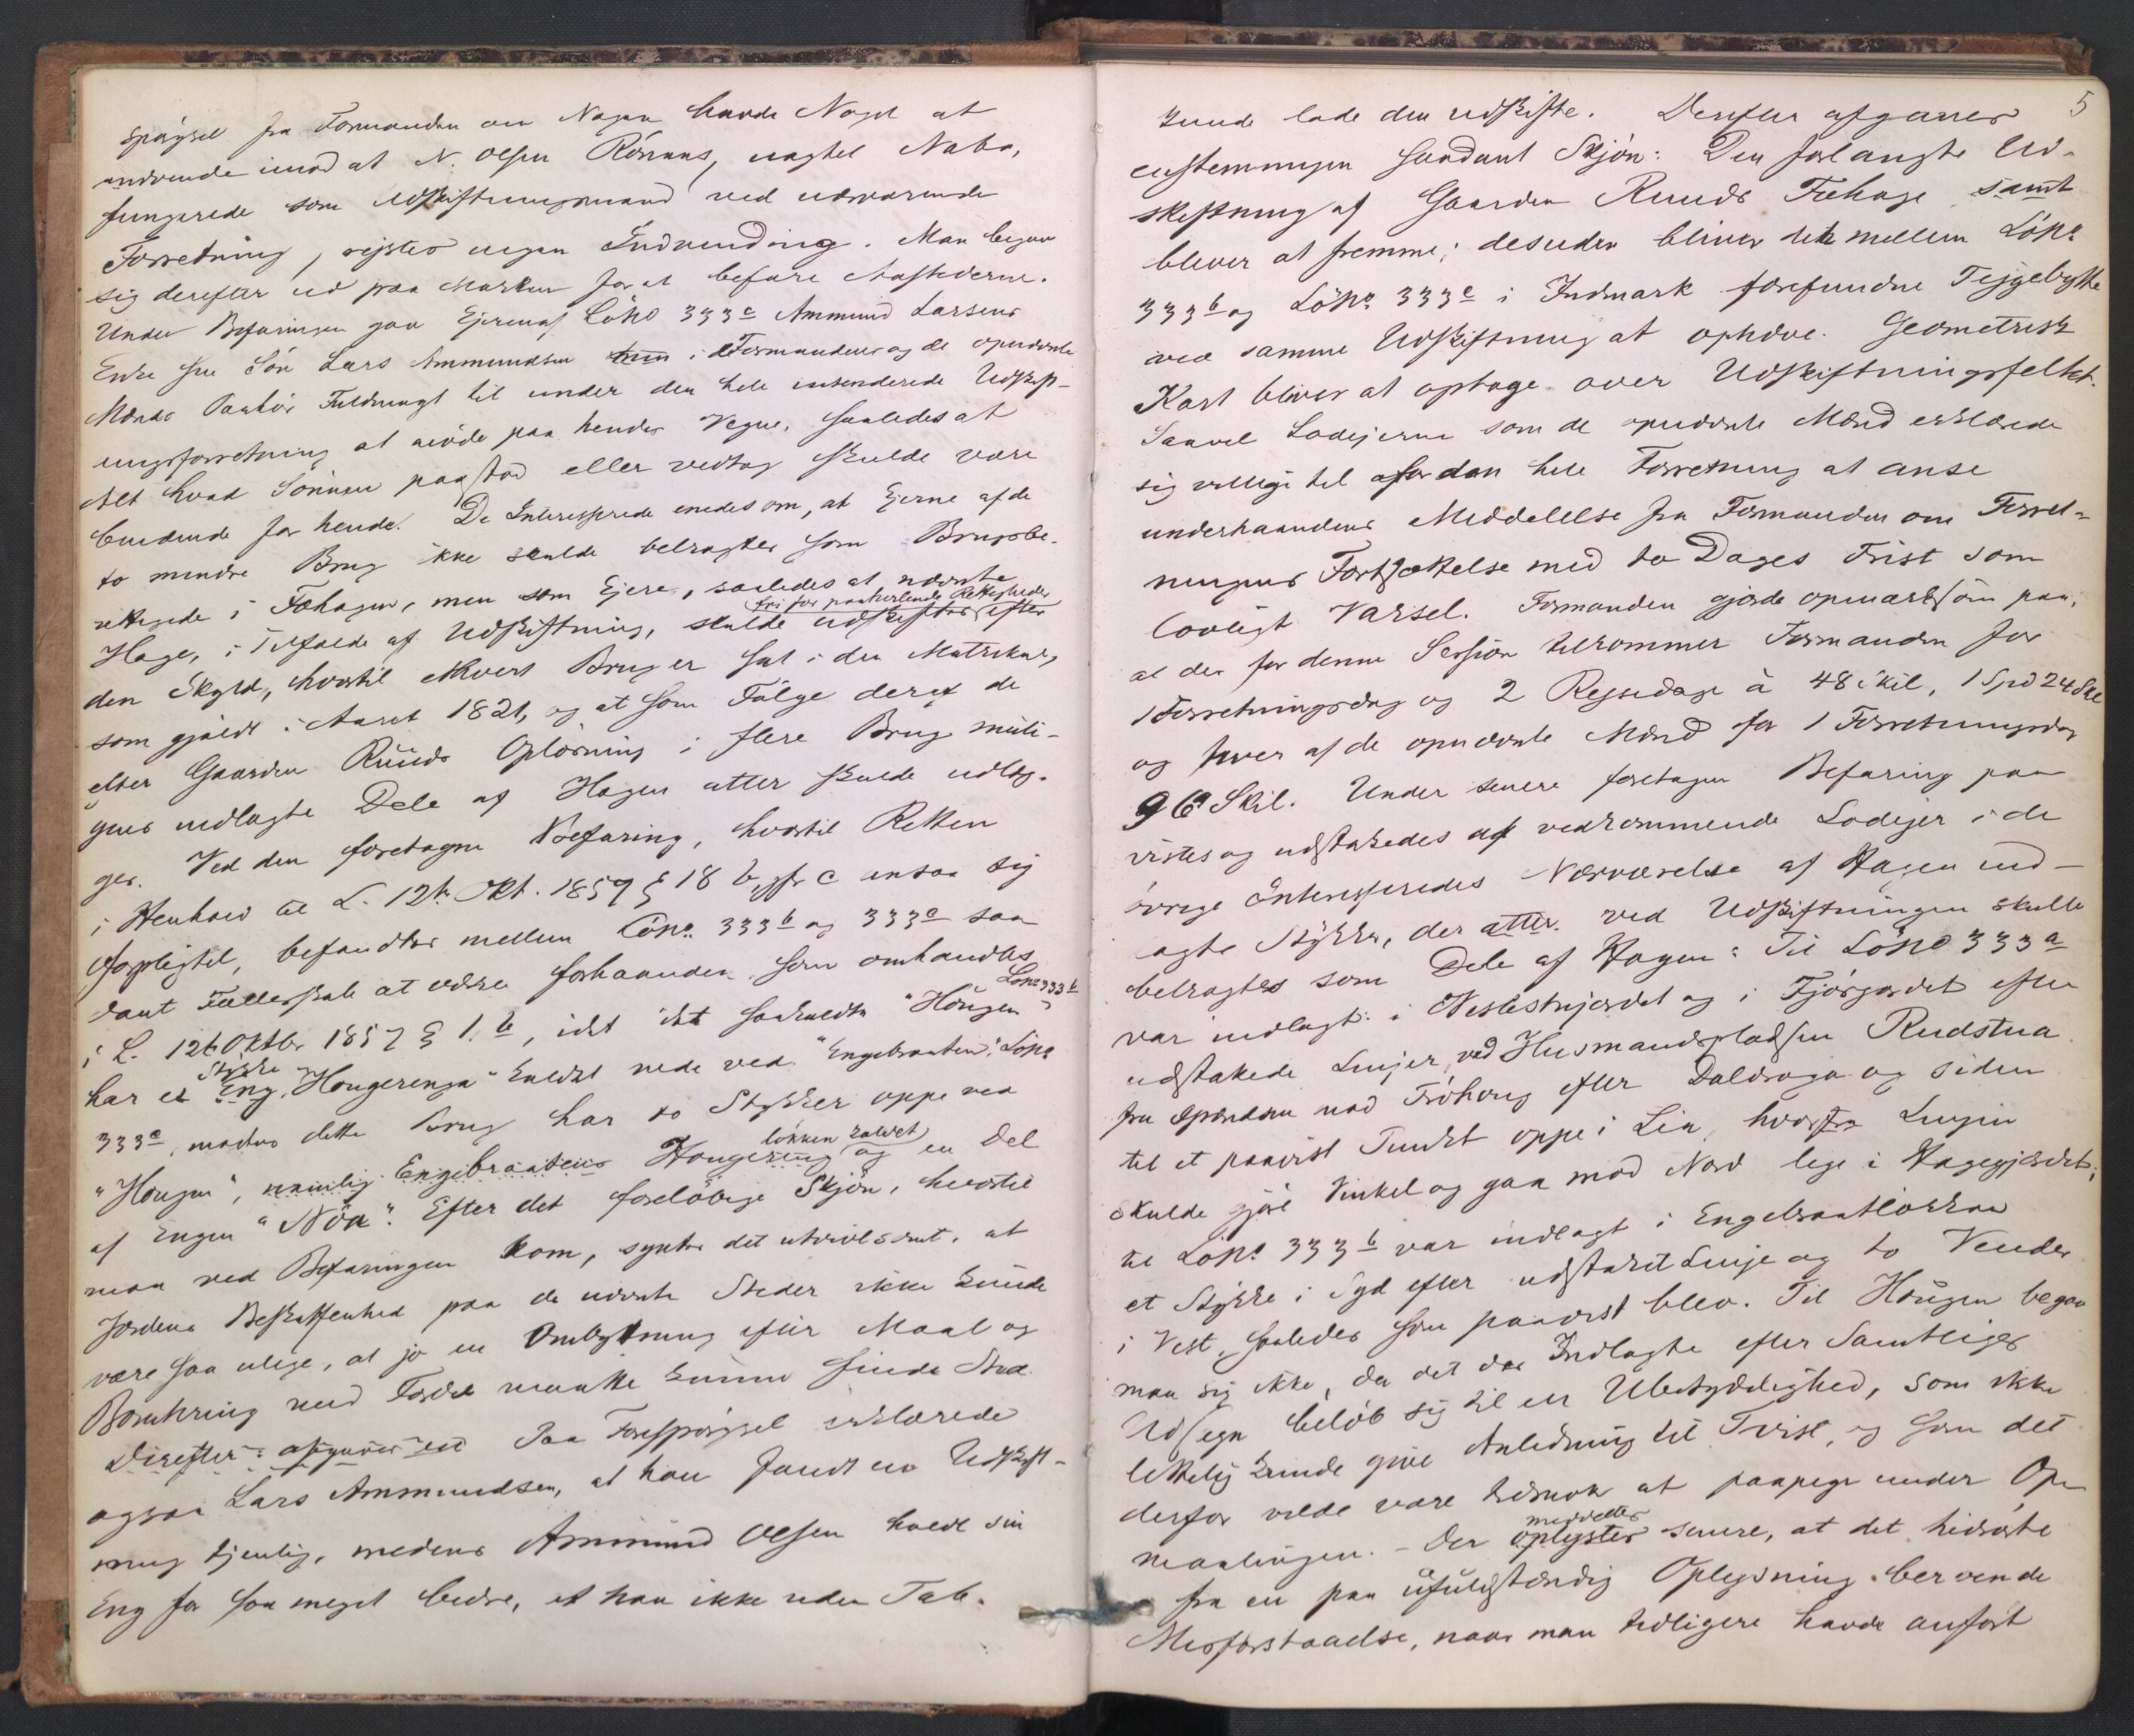 spörgsel fra Formanden om Nogen havde Noget at
indvende imod at N. Olsen Rönnaas, uagtet Nabo,
fungerede som Udskiftningsmand ved nærværende
Forretning, rejstes ingen Indvending. Man begav
sig derefter ud paa Marken for at befare Aastederne.
Under Befaringen gav Ejeren af Löpno 333c Ammund Larsens
Enke sin Sön Lars Ammundsen i Formandens og de opnævnte
Mænds Paahör Fuldmagt til under den hele intenderede Udskift-
ningsforretning at möde paa hendes Vegne, saaledes at
Alt hvad Sönnen paastod eller vedtog skulde være
bindende for hende. De Interesserede enedes om, at Ejerne af de
to mindre Brug ikke skulde betragtes som Brugsbe-
rettigede i Fæhagen, men som Ejere, saaledes at nævnte
fri for paaheftende Rettigheder
Hage, i Tilfælde af Udskiftning, skulde udskiftes efter
den Skyld, hvortil ethvert Brug er sat i den Matrikul,
som gjaldt i Aaret 1821, og at som Fölge deraf de
efter Gaarden Ruuds Oplösning i flere Brug muli-
gens indlagte Dele af Hagen atter skulde udlæg-
ges. Ved den foretagne Befaring, hvortil Retten
i Henhold til L. 12te Okt. 1857 § 18 b, jfr c ansaa sig
forpligtet, befandtes mellem Löpno 333b og 333c saa-
dant Fællesskab at være forhaanden som omhandles
i L. 12te Oktbr 1857 § 1. b, idet det saakaldte "Hougen" Löpno 333b
har et Stykke Eng "Hougerenga" kaldet nede ved "Engebraaten". Löpno
333c, medens dette Brug har to Stykker oppe ved
"Hougen", nemlig Engebraatens Hougereng lökken kaldet og en Del
af Engen "Nöa". Efter det foreløbige Skjön, hvortil
man ved Befaringen kom, syntes det utvivlsomt, at
Jordens Beskaffenhed paa de nævnte Steder ikke kunde
være saa ulige, at jo en Ombytning efter Maal og
Bonitering med Fordel maatte kunne finde Sted.
Derefter afgaves et Paa Forespörgsel erklærede
ogsaa Lars Ammundsen, at han fandt en Udskift-
ning tjenlig, medens Ammund Olsen holdt sin
Eng for saa meget bedre, at han ikke uden Tab
5
kunde lade den udskifte. Derefter afgaves
enstemmigen saadant Skjön: Den forlangte Ud-
skiftning af Gaarden Ruuds Fæhage samt
bliver at fremme; desuden bliver det mellem Löpno
333b og Löpno 333c i Indmark forefundne Tejgebytte
ved samme Udskiftning at ophæve. Geometrisk
Kart bliver at optage over Udskiftningsfeltet.
Saavel Lodejerne som de opnævnte Mænd erklærede
sig villige til for den hele Forretning at anse
underhaandens Meddelelse fra Formanden om Forret-
ningens Fortsættelse med to Dages Frist som
lovligt Varsel. Formanden gjorde opmærksom paa,
at der for denne Session tilkommer Formanden for
1 Forretningsdag og 2 Rejsedage à 48 Skil, 1 Spd 24 Skl
og hver af de opnævnte Mænd for 1 Forretningsdag
96 Skil. Under senere foretagen Befaring paa-
vistes og udstakedes af vedkommende Lodejer i de
övrige Interesseredes Nærværelse af Hagen ind-
lagte Stykker, der atter ved Udskiftningen skulle
betragtes som Dele af Hagen: Til Löpno 333a
var indlagt i Neslestrjordet og i Fjösjordet efter
udstakede Linjer, ved Husmandspladsen Rudstua
fra Spærdem nod Fröhoug efter Daldraga og siden
til et paavist Punkt oppe i Lia, hvorfra Linjen
skulde gjöre Vinkel og gaa mod Nord lige i Hagegjerdet;
til Löpno 333b var indlagt i Engebraatlökken
et Stykke i Syd efter udstaket Linje og to Vender
i Vest, saaledes som paavist blev. Til Hougen begav
man sig ikke, da det der Indlagte efter Samtliges
Udsagn belöb sig til en Ubetydelighed, som ikke
lettelig kunde give Anledning til Tvist, og som det
derfor vilde være tidsnok at paapege under Op-
maalingen. - Der meddeltes oplystes senere, at det hidrörte
fra en paa ufuldstændig Oplysning beroende
Misforstaaelse, naar man tidligere havde anfört